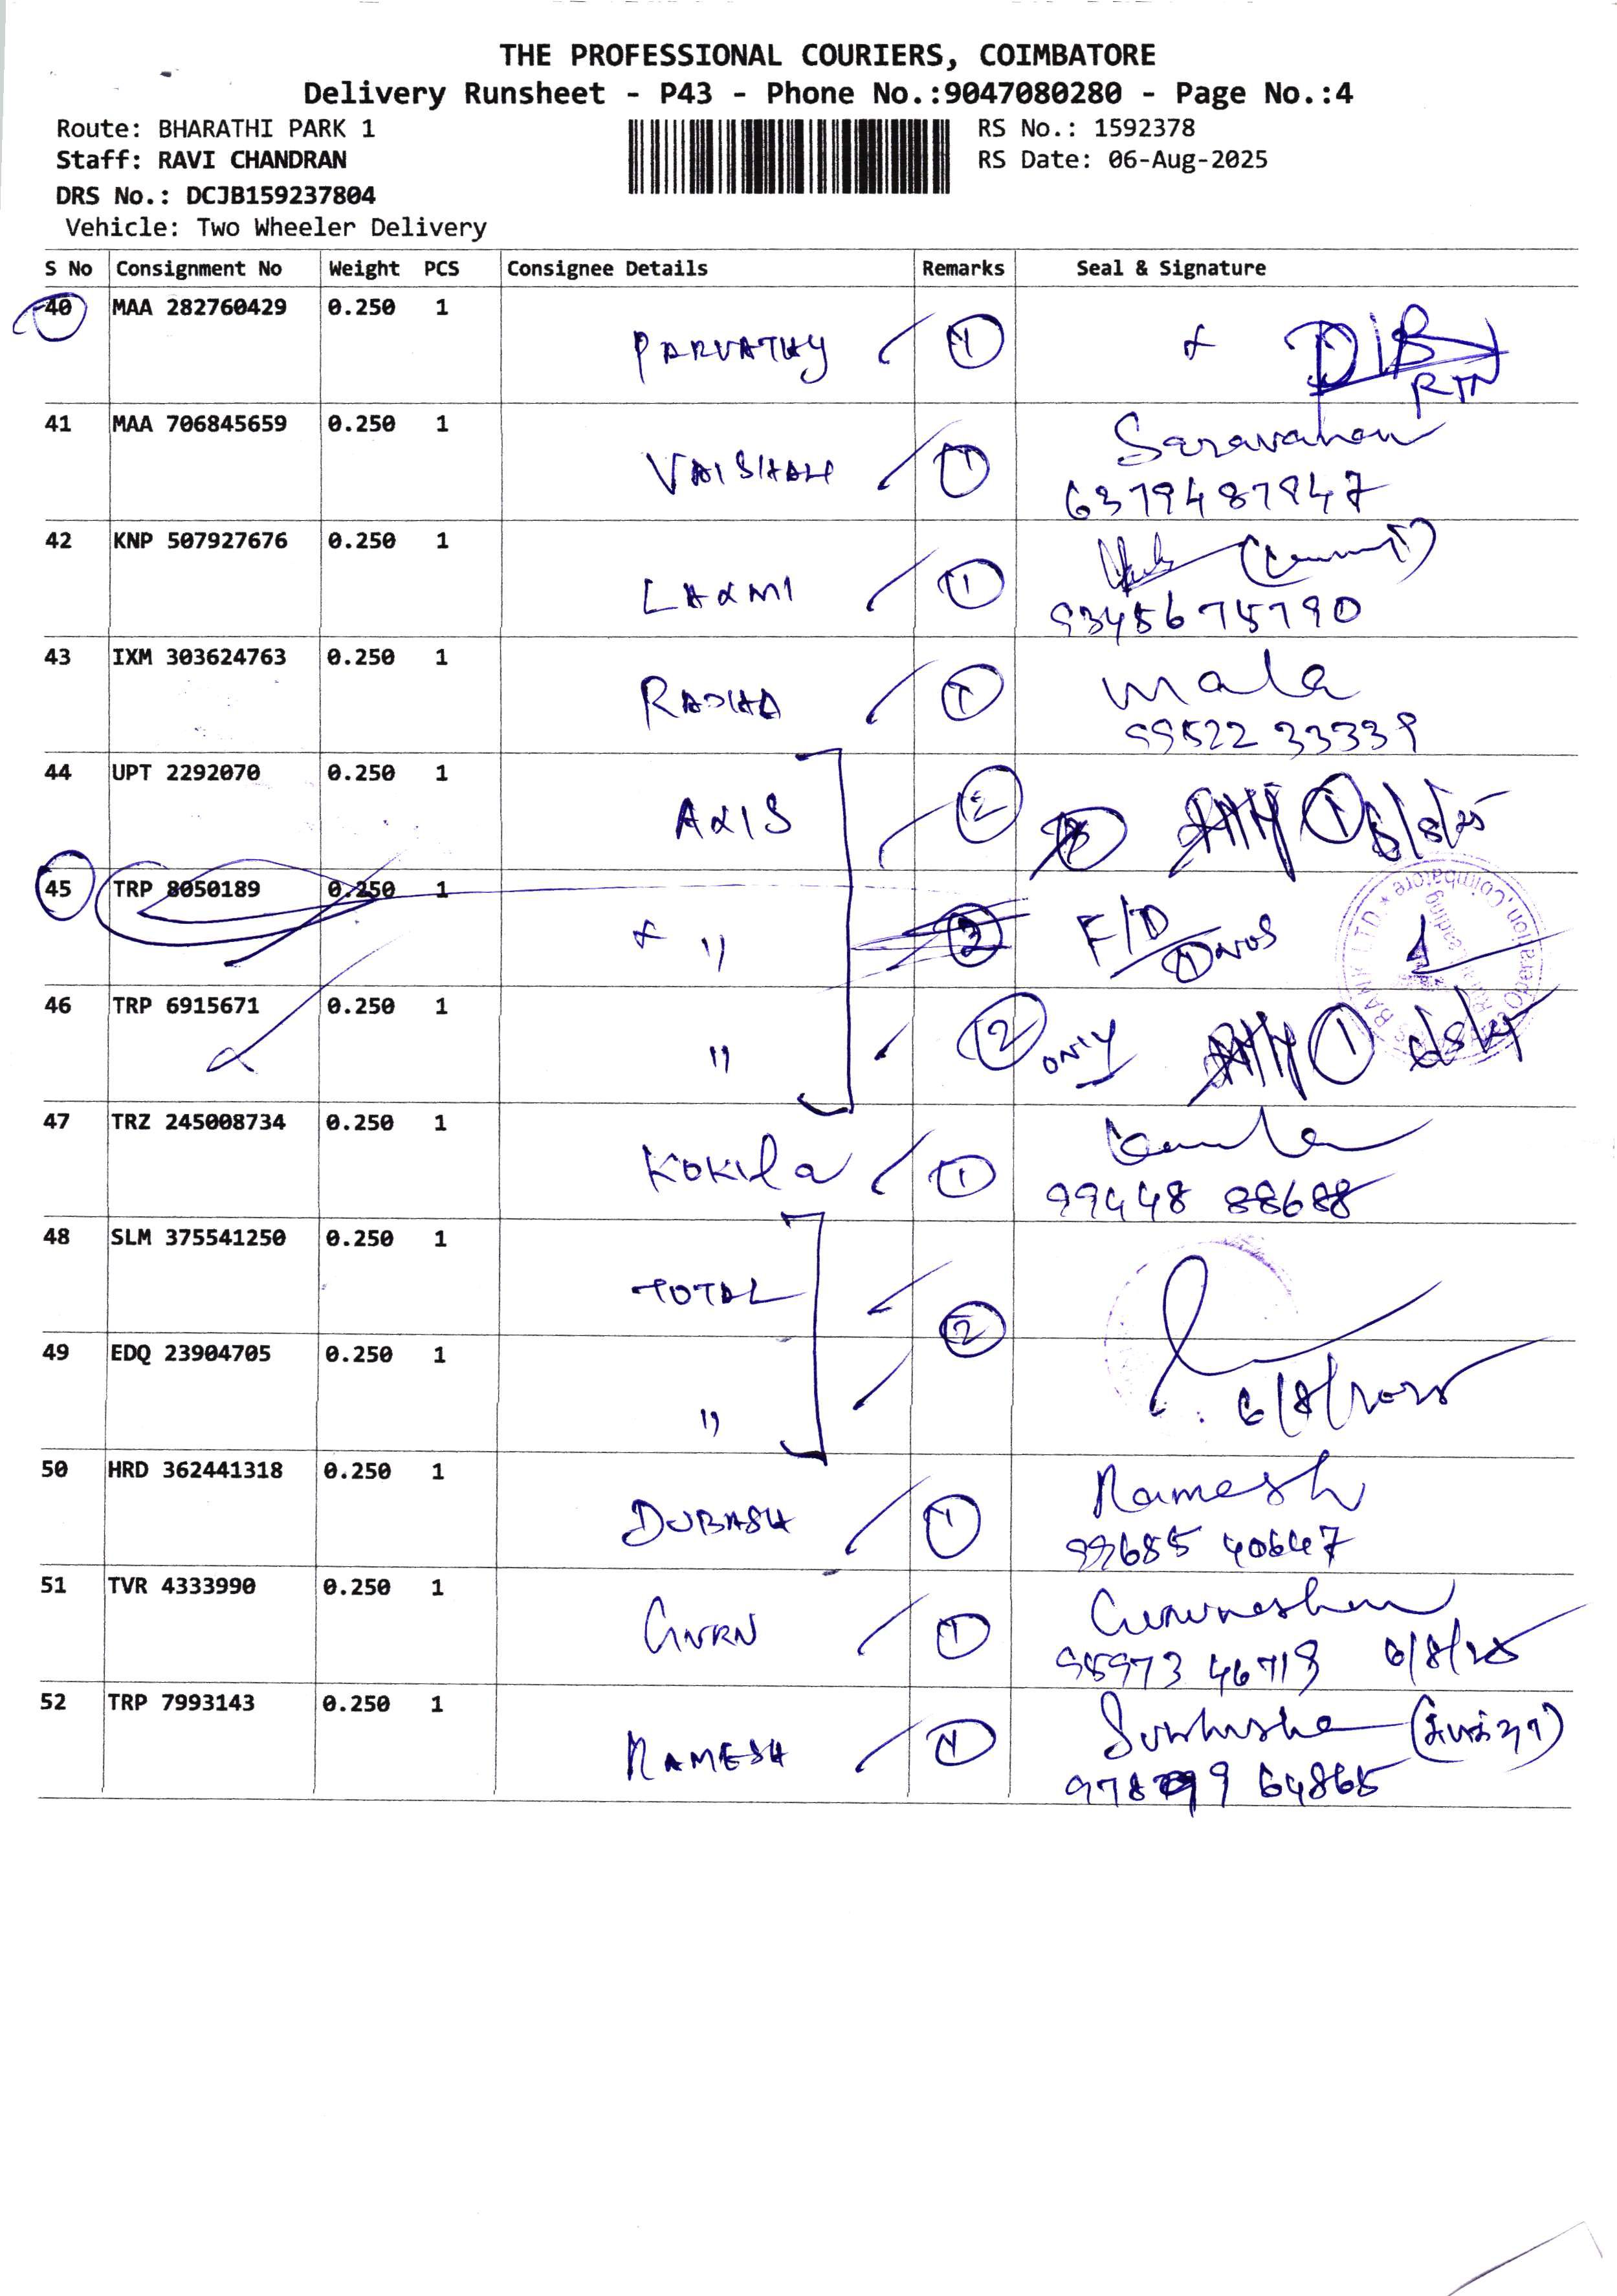 THE PROFESSIONAL COURIERS, COIMBATORE
Delivery Runsheet - P43 - Phone No.:9047080280 - Page No.:4
Route: BHARATHI PARK 1
RS No.: 1592378
Staff: RAVI CHANDRAN
RS Date: 06-Aug-2025
DRS No.: DCJB159237804
Vehicle: Two Wheeler Delivery
S No Consignment No Weight PCS Consignee Details Remarks Seal & Signature
40 MAA 282760429 0.250 1
PARVATHY 1
RTN
41 MAA 706845659 0.250 1
VAISHALI 1 Saravanan
6379487947
42 KNP 507927676 0.250 1
LAXMI 1
9345675790
43 IXM 303624763 0.250 1
RADHA 1 mala
99522 33339
44 UPT 2292070 0.250 1
AXIS 2 1 6/8/25
45 TRP 8050189 0.250 1
" 2 F/D
46 TRP 6915671 0.250 1
" 2 ONLY 1
47 TRZ 245008734 0.250 1
KOKILA 1
99448 88688
48 SLM 375541250 0.250 1
TOTAL
2
49 EDQ 23904705 0.250 1
" 6/8/2025
50 HRD 362441318 0.250 1
DUBASH 1 Ramesh
99685 40647
51 TVR 4333990 0.250 1
GNRN 1
95973 46719 6/8/25
52 TRP 7993143 0.250 1
RAMESH 1
64865